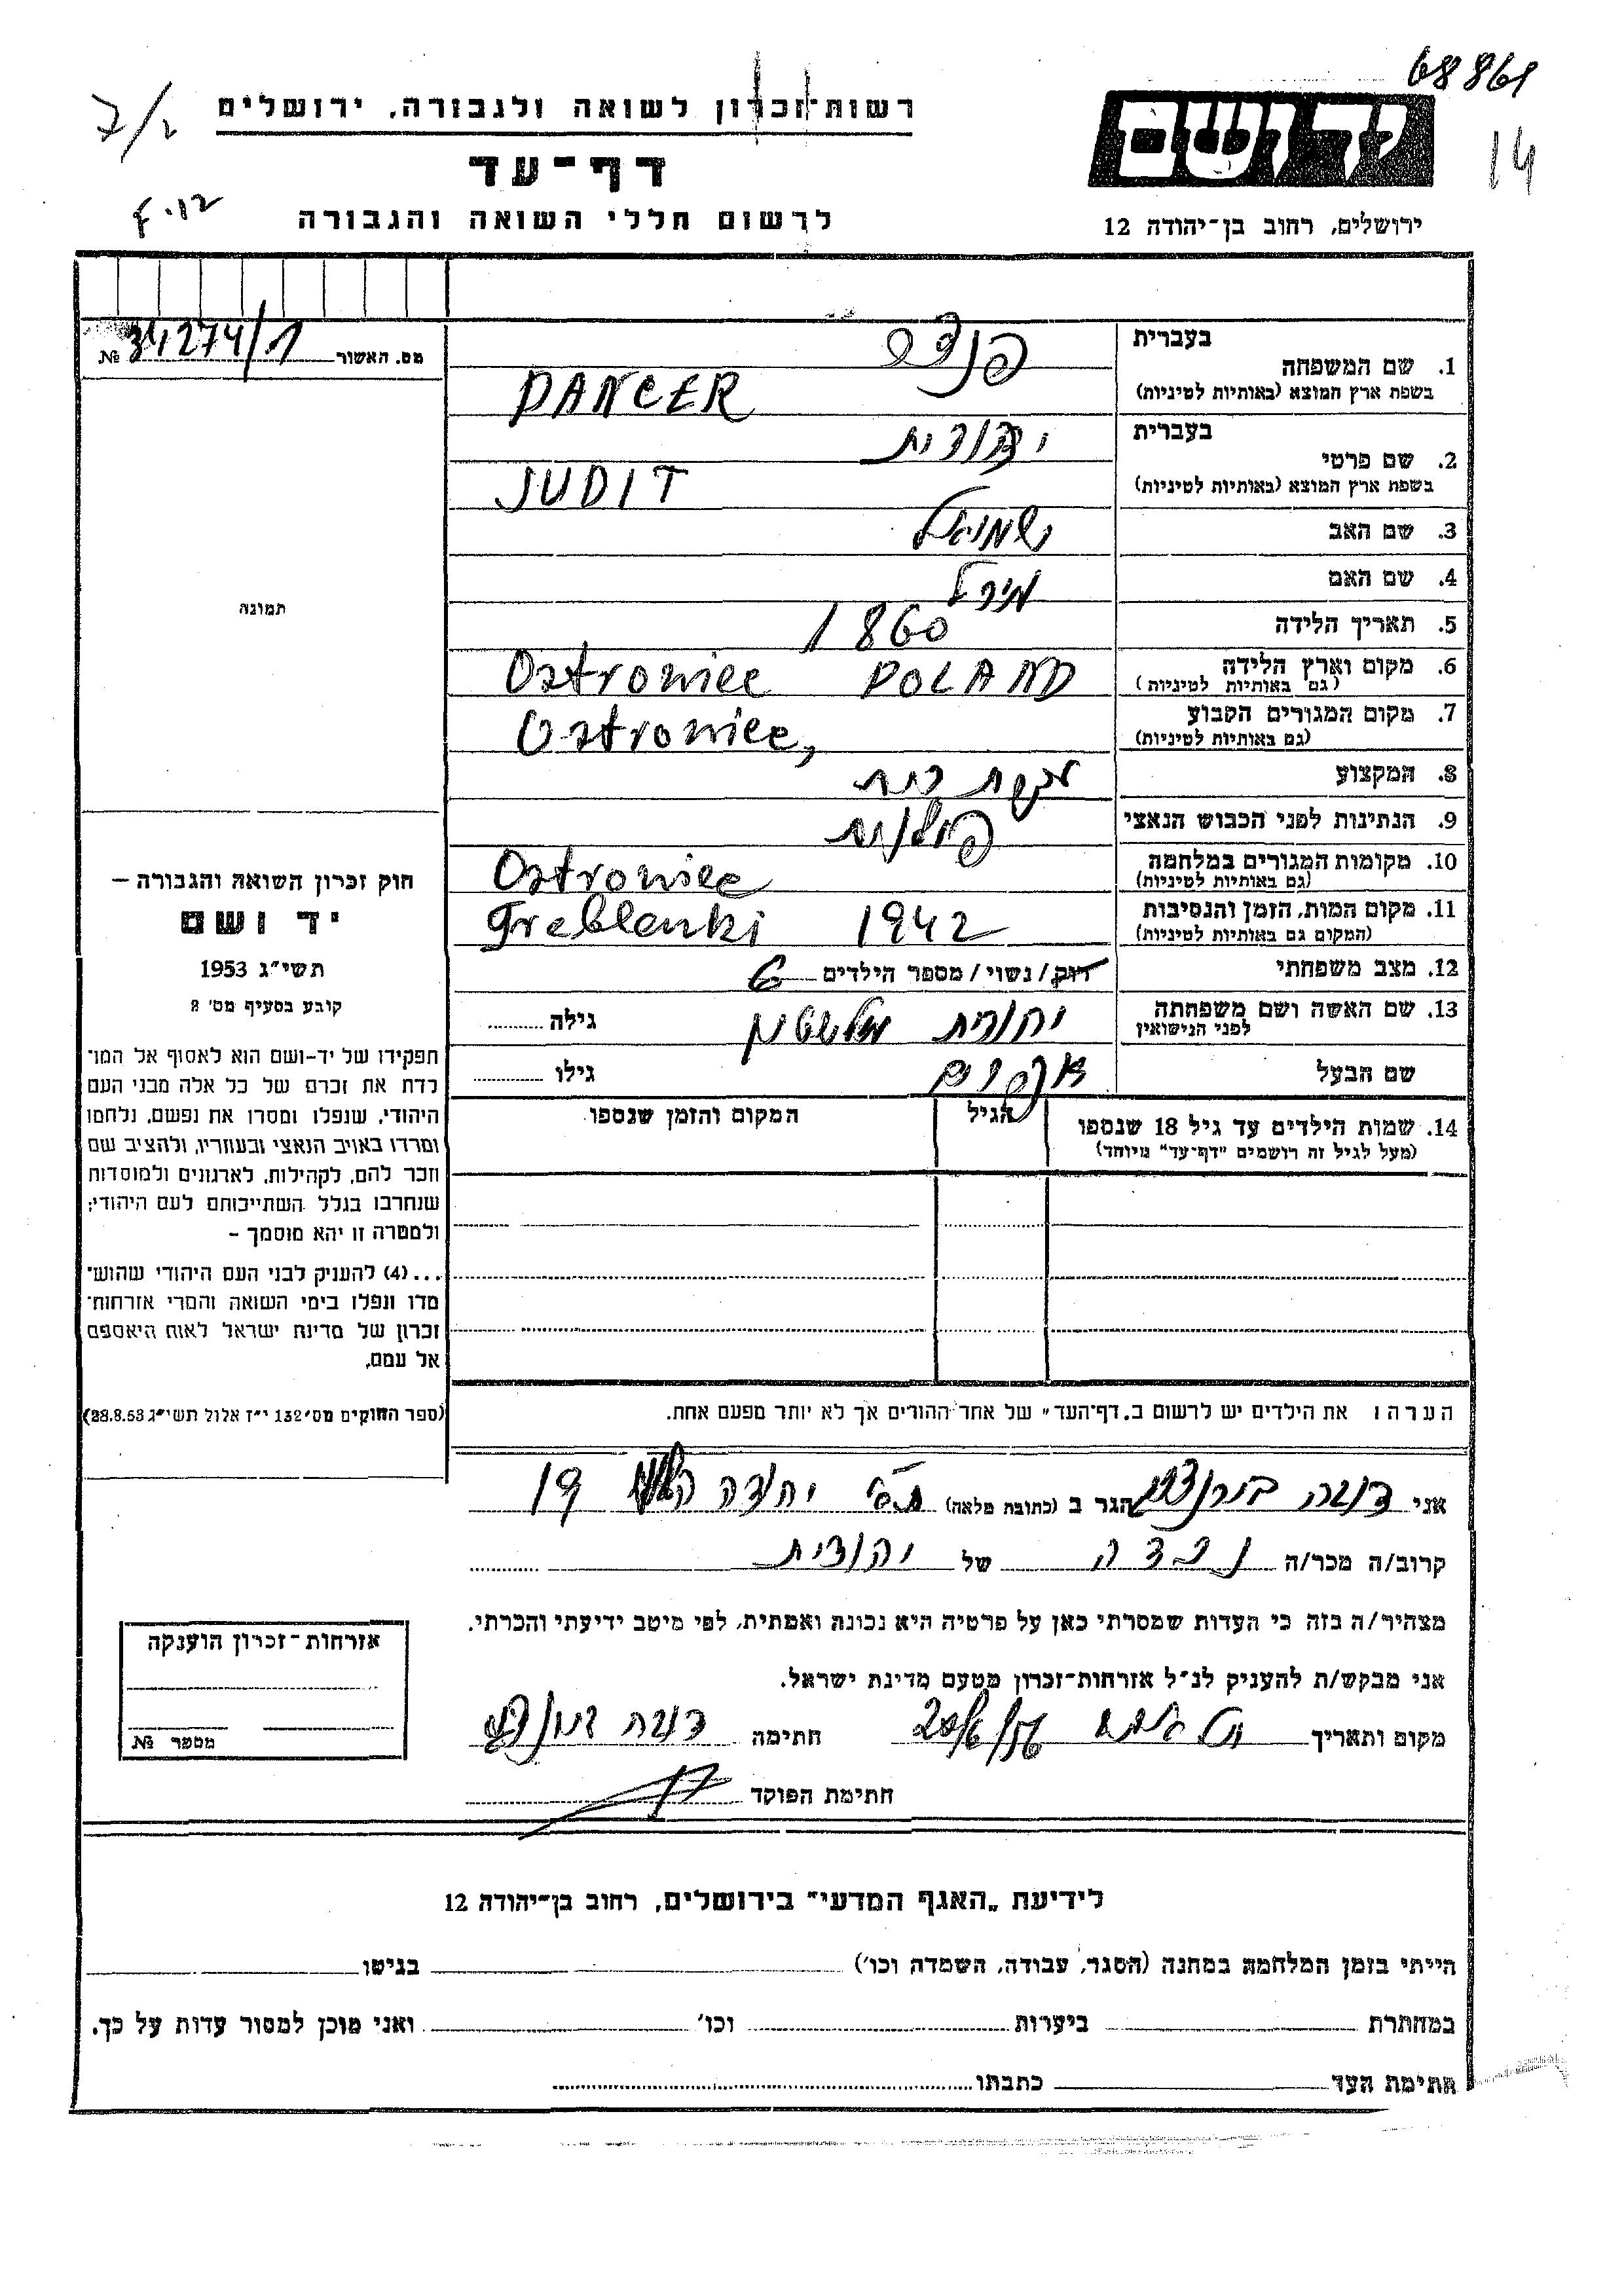 68861
14
יד ושם
ירושלים, רחוב בן־יהודה 12
רשות־זכרון לשואה ולגבורה, ירושלים
דף־עד
לרשום חללי השואה והגבורה
מס. האשור 34274/1 №
תמונה
בעברית
1. שם המשפחה
בשפת ארץ המוצא (באותיות לטיניות) PANCER
בעברית יהודית
2. שם פרטי
בשפת ארץ המוצא (באותיות לטיניות) JUDIT
3. שם האב שמואל
4. שם האם מירל
5. תאריך הלידה 1860
6. מקום וארץ הלידה Ostrowiec POLAND
(גם באותיות לטיניות)
7. מקום המגורים הקבוע Ostrowiec,
(גם באותיות לטיניות)
8. המקצוע עקרת בית
9. הנתינות לפני הכבוש הנאצי פולנית
10. מקומות המגורים במלחמה Ostrowiec
(גם באותיות לטיניות)
11. מקום המות, הזמן והנסיבות Treblenki 1942
(המקום גם באותיות לטיניות)
12. מצב משפחתי רוק/נשוי/מספר הילדים 6
13. שם האשה ושם משפחתה יהודית גילה
לפני הנישואין
שם הבעל אפרים גילו
14. שמות הילדים עד גיל 18 שנספו הגיל המקום והזמן שנספו
(מעל לגיל זה רושמים "דף־עד" מיוחד)
הערה: את הילדים יש לרשום ב„דף־העד" של אחד ההורים אך לא יותר מפעם אחת.
חוק זכרון השואה והגבורה –
יד ושם
תשי"ג 1953
קובע בסעיף מס' 2
תפקידו של יד-ושם הוא לאסוף אל המו־
לדת את זכרם של כל אלה מבני העם
היהודי, שנפלו ומסרו את נפשם, נלחמו
ומרדו באויב הנאצי ובעוזריו, ולהציב שם
וזכר להם, לקהילות, לארגונים ולמוסדות
שנחרבו בגלל השתייכותם לעם היהודי;
ולמטרה זו יהא מוסמך –
...(4) להעניק לבני העם היהודי שהוש־
מדו ונפלו בימי השואה והמרי אזרחות־
זכרון של מדינת ישראל לאות היאספם
אל עמם.
(ספר החוקים מס' 132 י"ז אלול תשי"ג 28.8.53)
אני הגר ב (כתובת מלאה) ת"א יהודה הלוי 19
קרוב/ה מכר/ה נכדה של יהודית
מצהיר/ה בזה כי העדות שמסרתי כאן על פרטיה היא נכונה ואמתית, לפי מיטב ידיעתי והכרתי.
אני מבקש/ת להעניק לנ"ל אזרחות־זכרון מטעם מדינת ישראל.
מקום ותאריך תל אביב חתימה
חתימת הפוקד
אזרחות־זכרון הוענקה
מספר №
לידיעת „האגף המדעי" בירושלים, רחוב בן־יהודה 12
הייתי בזמן המלחמה במחנה (הסגר, עבודה, השמדה וכו') בגיטו
במחתרת ביערות וכו' ואני מוכן למסור עדות על כך.
חתימת העד כתבתו